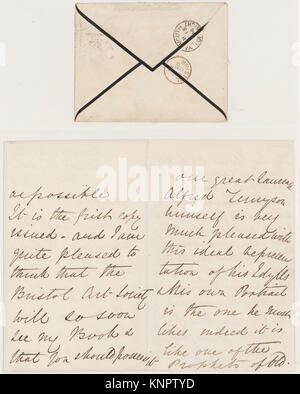 as possible
It is the first copy
issued - and I am
quite pleased to
think that the
Bristol Art Society
will so soon
see my Book &
that you should possess it
our great Laureate
Alfred Tennyson
himself is very
much pleased with
this ideal represen
tation of his Idylls
& His own Portrait
is the one he most
likes indeed it is
like one of the
Prophets of Old.
alamy
Image ID: KNPTYD
www.alamy.com